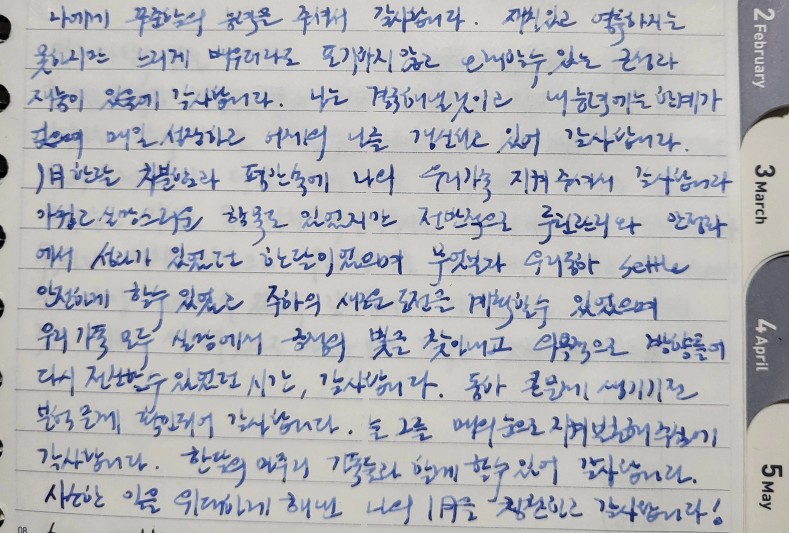 나에게 꾸준함의 능력을 주셔서 감사합니다. 재치있고 영특하지는
못하지만 느리게 배우더라도 포기하지 않고 오래할수 있는 근성과
재능이 있음에 감사합니다. 나는 결국해낼것이고 내능력에는 한계가
없으며 매일 성장하고 어제의 나를 갱신하고 있어 감사합니다.
1月 한달 차분함과 평안속에 나의 우리가족 지켜 주셔서 감사합니다
아쉽고 실망스러운 항목도 있었지만 전반적으로 루틴관리와 안정과
에서 성과가 있었던 한달이었으며 무엇보다 우리동아 settle
안전하게 할수 있었고 주하의 새로운 도전을 계획할수 있었으며
우리가족 모두 실망에서 긍정의 빛을 찾아내고 의욕적으로 방향틀어
다시 전환할수 있었던 시간, 감사합니다. 동아 큰문제 생기기전
문제 확인되어 감사합니다. 늘 그를 매의 눈으로 지켜보호해주심에
감사합니다. 한달의 마무리 가족들과 함께 할수 있어 감사합니다.
사소한 일을 위대하게 해낸 나의 1月을 칭찬하고 감사합니다!
2 February
3 March
4 April
5 May
08